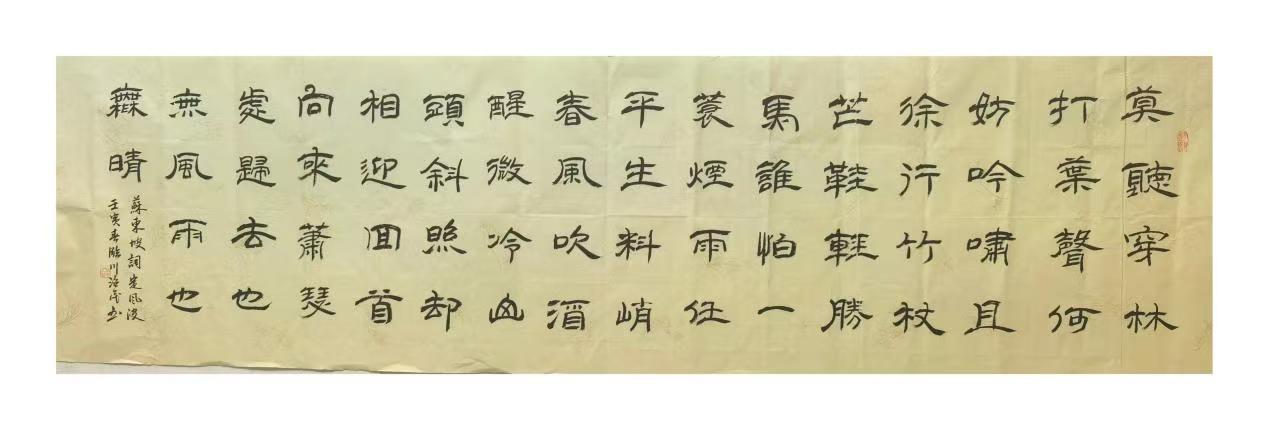 莫聽穿林
打葉聲何
妨吟嘯且
徐行竹杖
芒鞋輕勝
馬誰怕一
蓑煙雨任
平生料峭
春風吹酒
醒微冷山
頭斜照却
相迎回首
向來蕭瑟
處歸去也
無風雨也
無晴
蘇東坡詞定風波
壬寅春臨川書